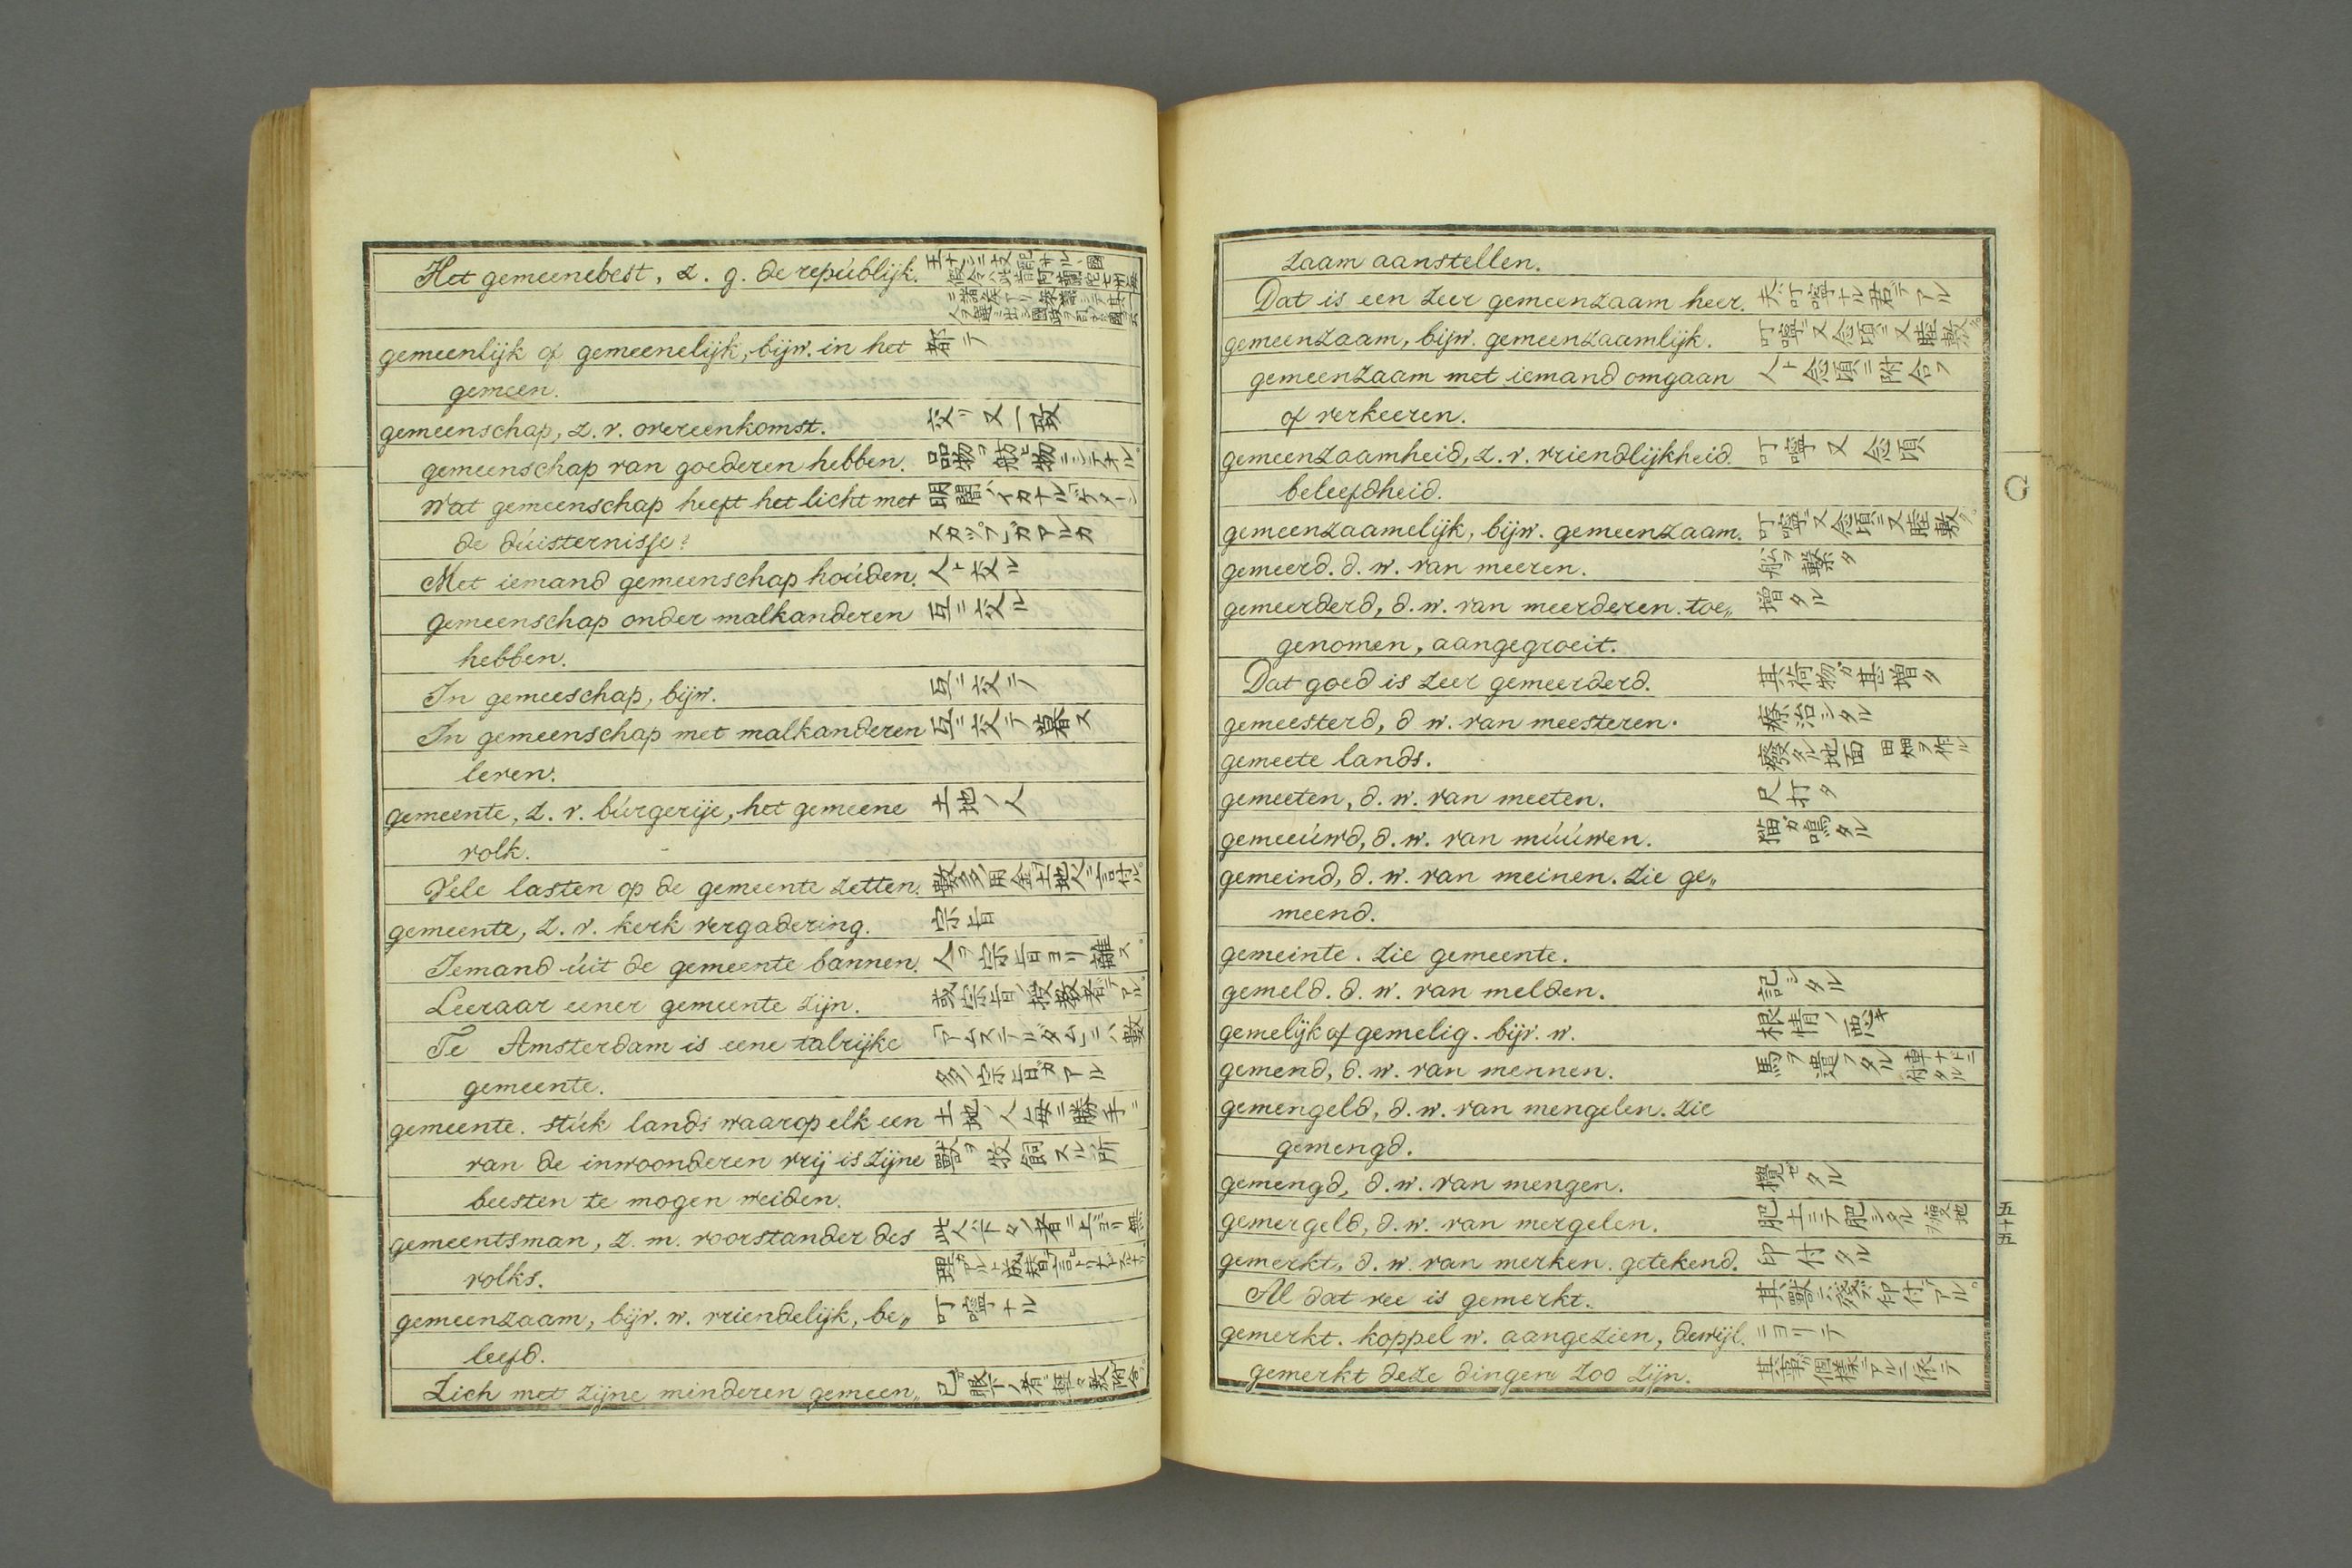 Het gemeenebest, z. g. de repúblijk.
gemeenlijk of gemeenelijk, bijw. in het 都テ
gemeen.
gemeenschap, z. v. overeenkomst. 交リ 又 一致
gemeenschap van goederen hebben. 品物ヲ 物ニシテオル。
Wat gemeenschap heeft het licht met 明闇ハイカナル
de dúisternisse?
Met iemand gemeenschap hoúden. 人ト交ル
gemeenschap onder malkanderen 互ニ交ル
hebben.
In gemeeschap, bijw. 互ニ交テ
In gemeenschap met malkanderen 互ニ交テ暮ス
leven.
gemeente, z. v. búrgerije, het gemeene 土地ノ人
volk.
Vele lasten op de gemeente zetten. 数多ノ用金ヲ土地ノ人ニ言付ル。
gemeente, z. v. kerk vergadering. 宗旨
Iemand úit de gemeente bannen. 人ヲ宗旨ヨリ離ス。
Leeraar eener gemeente zijn. 或宗旨ノ授教者テアル。
Te Amsterdam is eene talrijke アムステルダムニハ数
gemeente. 多ノ宗旨ガアル
gemeente. stúk lands waarop elk een 土地ノ人毎ニ勝手ニ
van de inwoonderen vrij is zijne 獣ヲ牧飼スル所
beesten te mogen weiden.
gemeentsman, z. m. voorstander des
volks.
gemeenzaam, bijv. w. vriendelijk, be„ 叮嚀ナル
leefd.
Zich met zijne minderen gemeen„
zaam aanstellen.
Dat is een zeer gemeenzaam heer. 夫ハ叮嚀ナル君テアル
gemeenzaam, bijw. gemeenzaamlijk. 叮嚀ニ又念頃ニ又睦敷
gemeenzaam met iemand omgaan 人ト念頃ニ附合フ
of verkeeren.
gemeenzaamheid, z. v. vriendlijkheid. 叮嚀 又 念頃
beleefdheid.
gemeenzaamelijk, bijw. gemeenzaam. 叮嚀ニ又念頃ニ又睦敷ク。
gemeerd. d. w. van meeren. 舩ヲ繋タ
gemeerderd, d. w. van meerderen. toe„ 増タル
genomen, aangegroeit.
Dat goed is zeer gemeerderd. 其荷物ガ甚増タ
gemeesterd, d w. van meesteren. 療治シタル
gemeete lands. 地面 田畑ヲ作ル
gemeeten, d. w. van meeten. 尺打タ
gemeeúwd, d. w. van múúwen. 猫ガ鳴タル
gemeind, d. w. van meinen. zie ge„
meend.
gemeinte. zie gemeente.
gemeld. d. w. van melden. 記シタル
gemelijk of gemelig. bijv. w. 根情ノ悪キ
gemend, d. w. van mennen. 馬ヲ遣フタル
gemengeld, d. w. van mengelen. zie
gemengd.
gemengd, d. w. van mengen. 攪ゼタル
gemergeld, d. w. van mergelen. 肥土ニテ肥シタル
gemerkt, d. w. van merken. getekend. 印付タル
Al dat vee is gemerkt. 其獣ニハ残ラズ印付テアル。
gemerkt. koppel w. aangezien, dewijl. ニヨリテ
gemerkt deze dingen zoo zijn. 其事ガ個様ニアルニ依テ
G
五十五